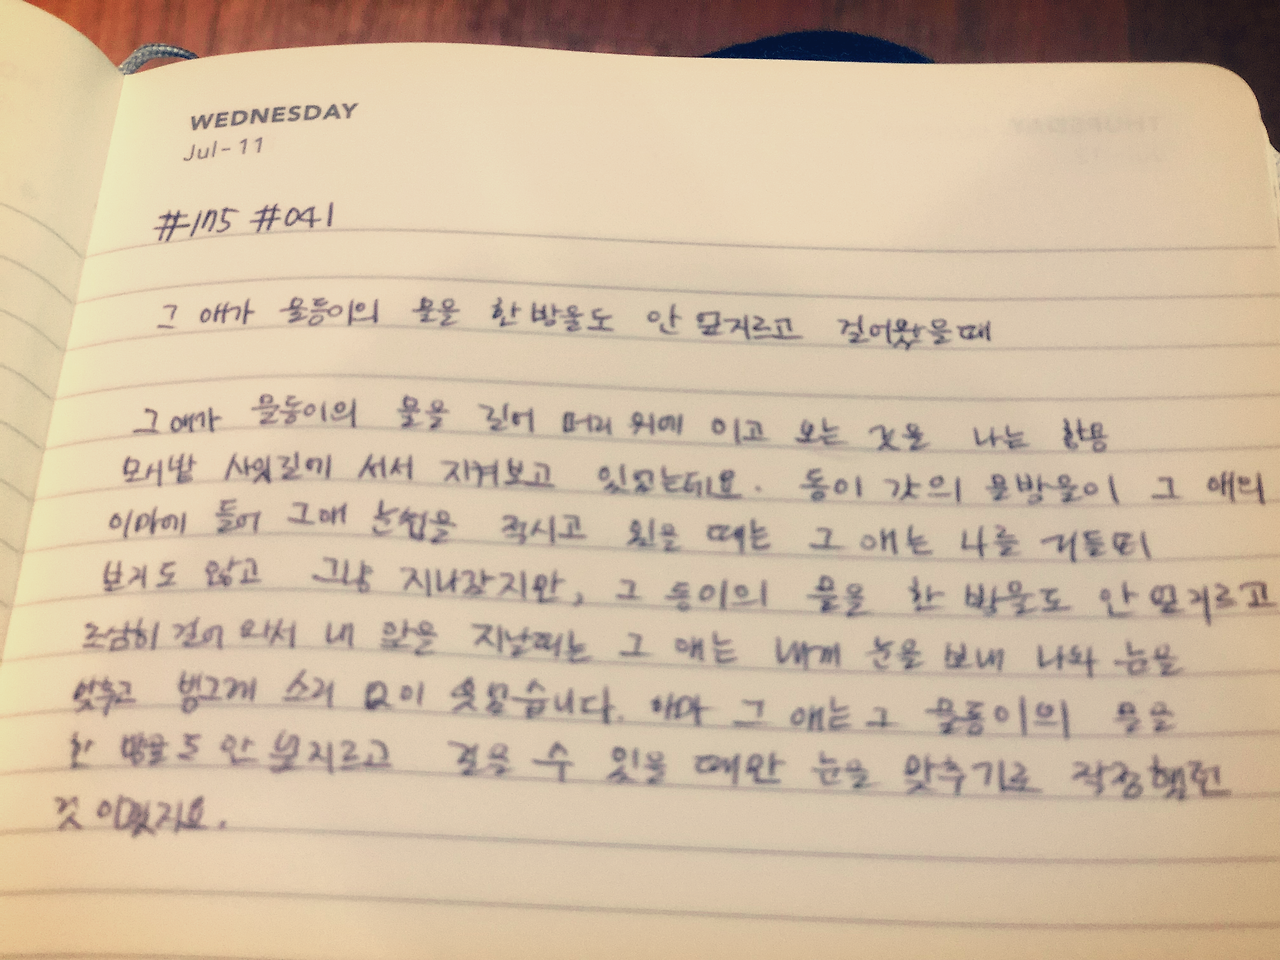 WEDNESDAY
Jul-11
#175 #041
그 애가 물동이의 물을 한방울도 안 엎지르고 걸어왔을때
그 애가 물동이의 물을 길어 머리 위에 이고 오는 것을 나는 항용
모시밭 사잇길에 서서 지켜보고 있었는데요. 동이 갓의 물방울이 그 애의
이마에 들어 그애 눈썹을 적시고 있을 때는 그 애는 나를 거들떠
보지도 않고 그냥 지나갔지만, 그 동이의 물을 한 방울도 안 엎지르고
조심히 걸어 와서 내 앞을 지날때는 그 애는 내게 눈을 보내 나와 눈을
맞추고 빙그레 소리 없이 웃었습니다. 아마 그 애는 그 물동이의 물을
한 방울도 안 엎지르고 걸을 수 있을 때만 눈을 맞추기로 작정했던
것 이었지요.